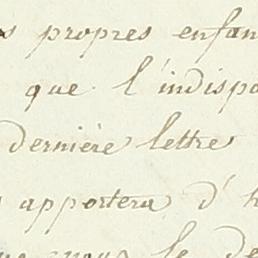 propres enfan
que l'indispo
derniere lettre
apportera d'h
le de